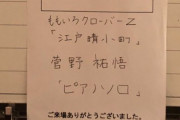 ももいろクローバーZ
「江戸晴小町」
菅野祐悟
「ピアノソロ」
ご来場ありがとうございました。